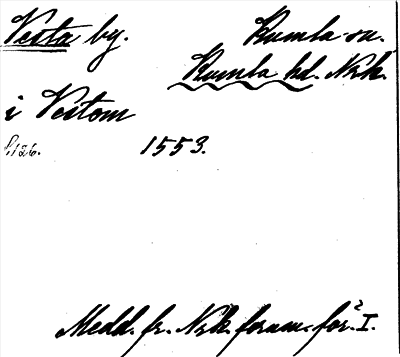 Vesta by. Kumla sn.
Kumla hd. Nrk.
i Vestom
s. 126. 1553.
Medd. fr. Nrk. fornm. för. I.